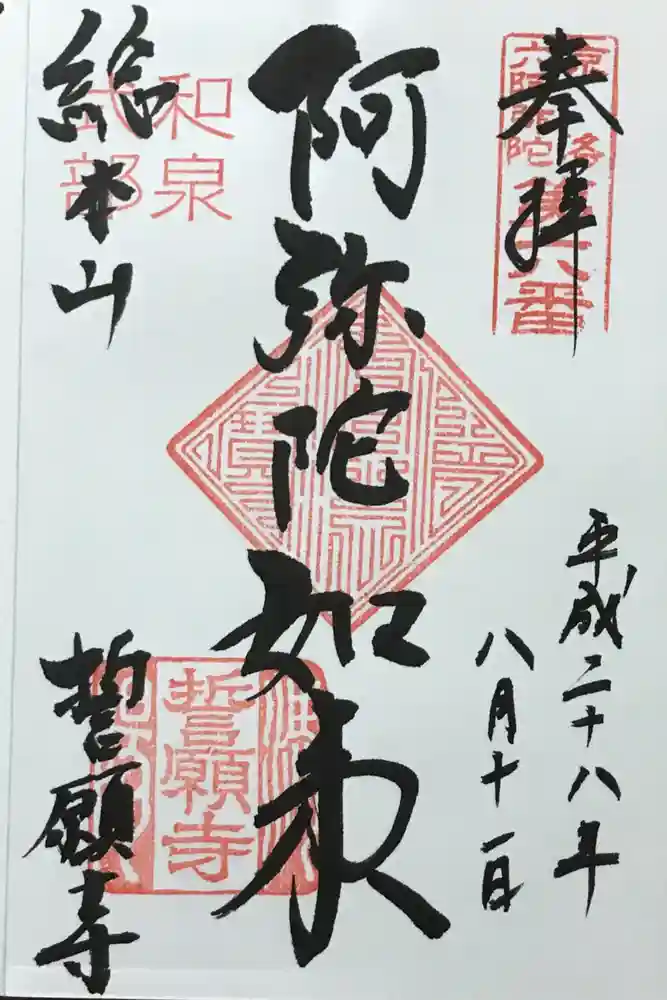 奉拝
平成二十八年
八月十一日
阿弥陀如来
総本山
誓願寺
京洛
六阿弥陀
第六番
和泉
式部
誓願寺